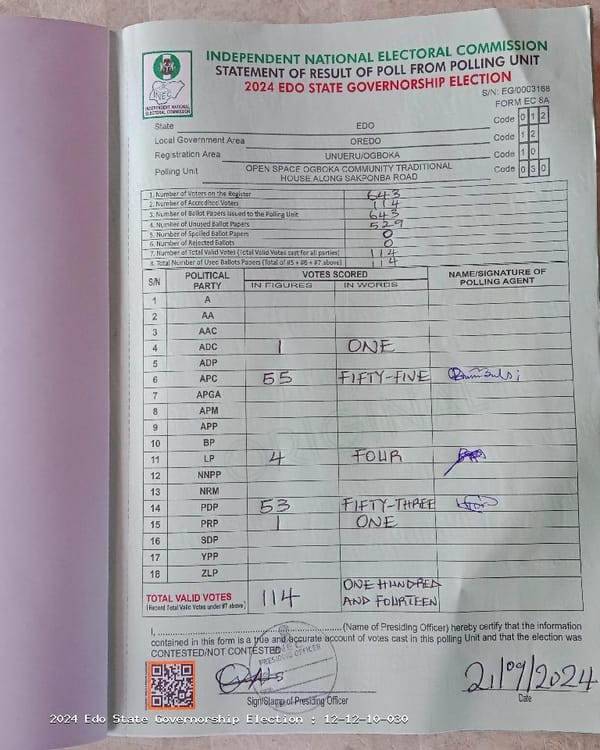 INDEPENDENT NATIONAL ELECTORAL COMMISSION
STATEMENT OF RESULT OF POLL FROM POLLING UNIT
2024 EDO STATE GOVERNORSHIP ELECTION
INEC
INDEPENDENT NATIONAL ELECTORAL COMMISSION
S/N: EG/0003168
FORM EC 8A
State EDO Code 0 1 2
Local Government Area OREDO Code 1 2
Registration Area UNUERU/OGBOKA Code 1 0
Polling Unit OPEN SPACE OGBOKA COMMUNITY TRADITIONAL HOUSE ALONG SAKPONBA ROAD Code 0 3 0
1. Number of Voters on the Register 643
2. Number of Accredited Voters 114
3. Number of Ballot Papers Issued to the Polling Unit 643
4. Number of Unused Ballot Papers 529
5. Number of Spoiled Ballot Papers 0
6. Number of Rejected Ballots 0
7. Number of Total Valid Votes (Total Valid Votes cast for all parties) 114
8. Total Number of Used Ballots Papers (Total of #5 + #6 + #7 above) 114
S/N POLITICAL PARTY VOTES SCORED NAME/SIGNATURE OF POLLING AGENT
IN FIGURES IN WORDS
1 A
2 AA
3 AAC
4 ADC 1 ONE
5 ADP
6 APC 55 FIFTY-FIVE
7 APGA
8 APM
9 APP
10 BP
11 LP 4 FOUR
12 NNPP
13 NRM
14 PDP 53 FIFTY-THREE
15 PRP 1 ONE
16 SDP
17 YPP
18 ZLP
TOTAL VALID VOTES 114 ONE HUNDRED AND FOURTEEN
(Record Total Valid Votes under #7 above)
I, (Name of Presiding Officer) hereby certify that the information
contained in this form is a true and accurate account of votes cast in this polling Unit and that the election was
CONTESTED/NOT CONTESTED
INEC
PRESIDING OFFICER
21/09/2024
Sign/Stamp of Presiding Officer Date
2024 Edo State Governorship Election : 12-12-10-030